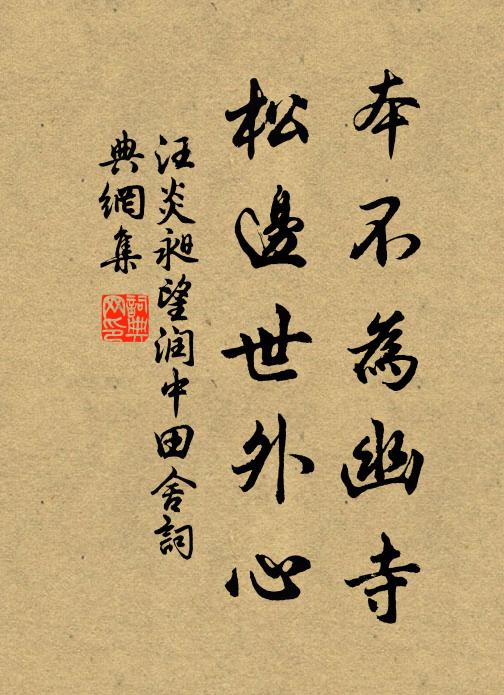 本不為幽寺
松邊世外心
汪炎昶望润中田舍詞
典網集
詞典网印